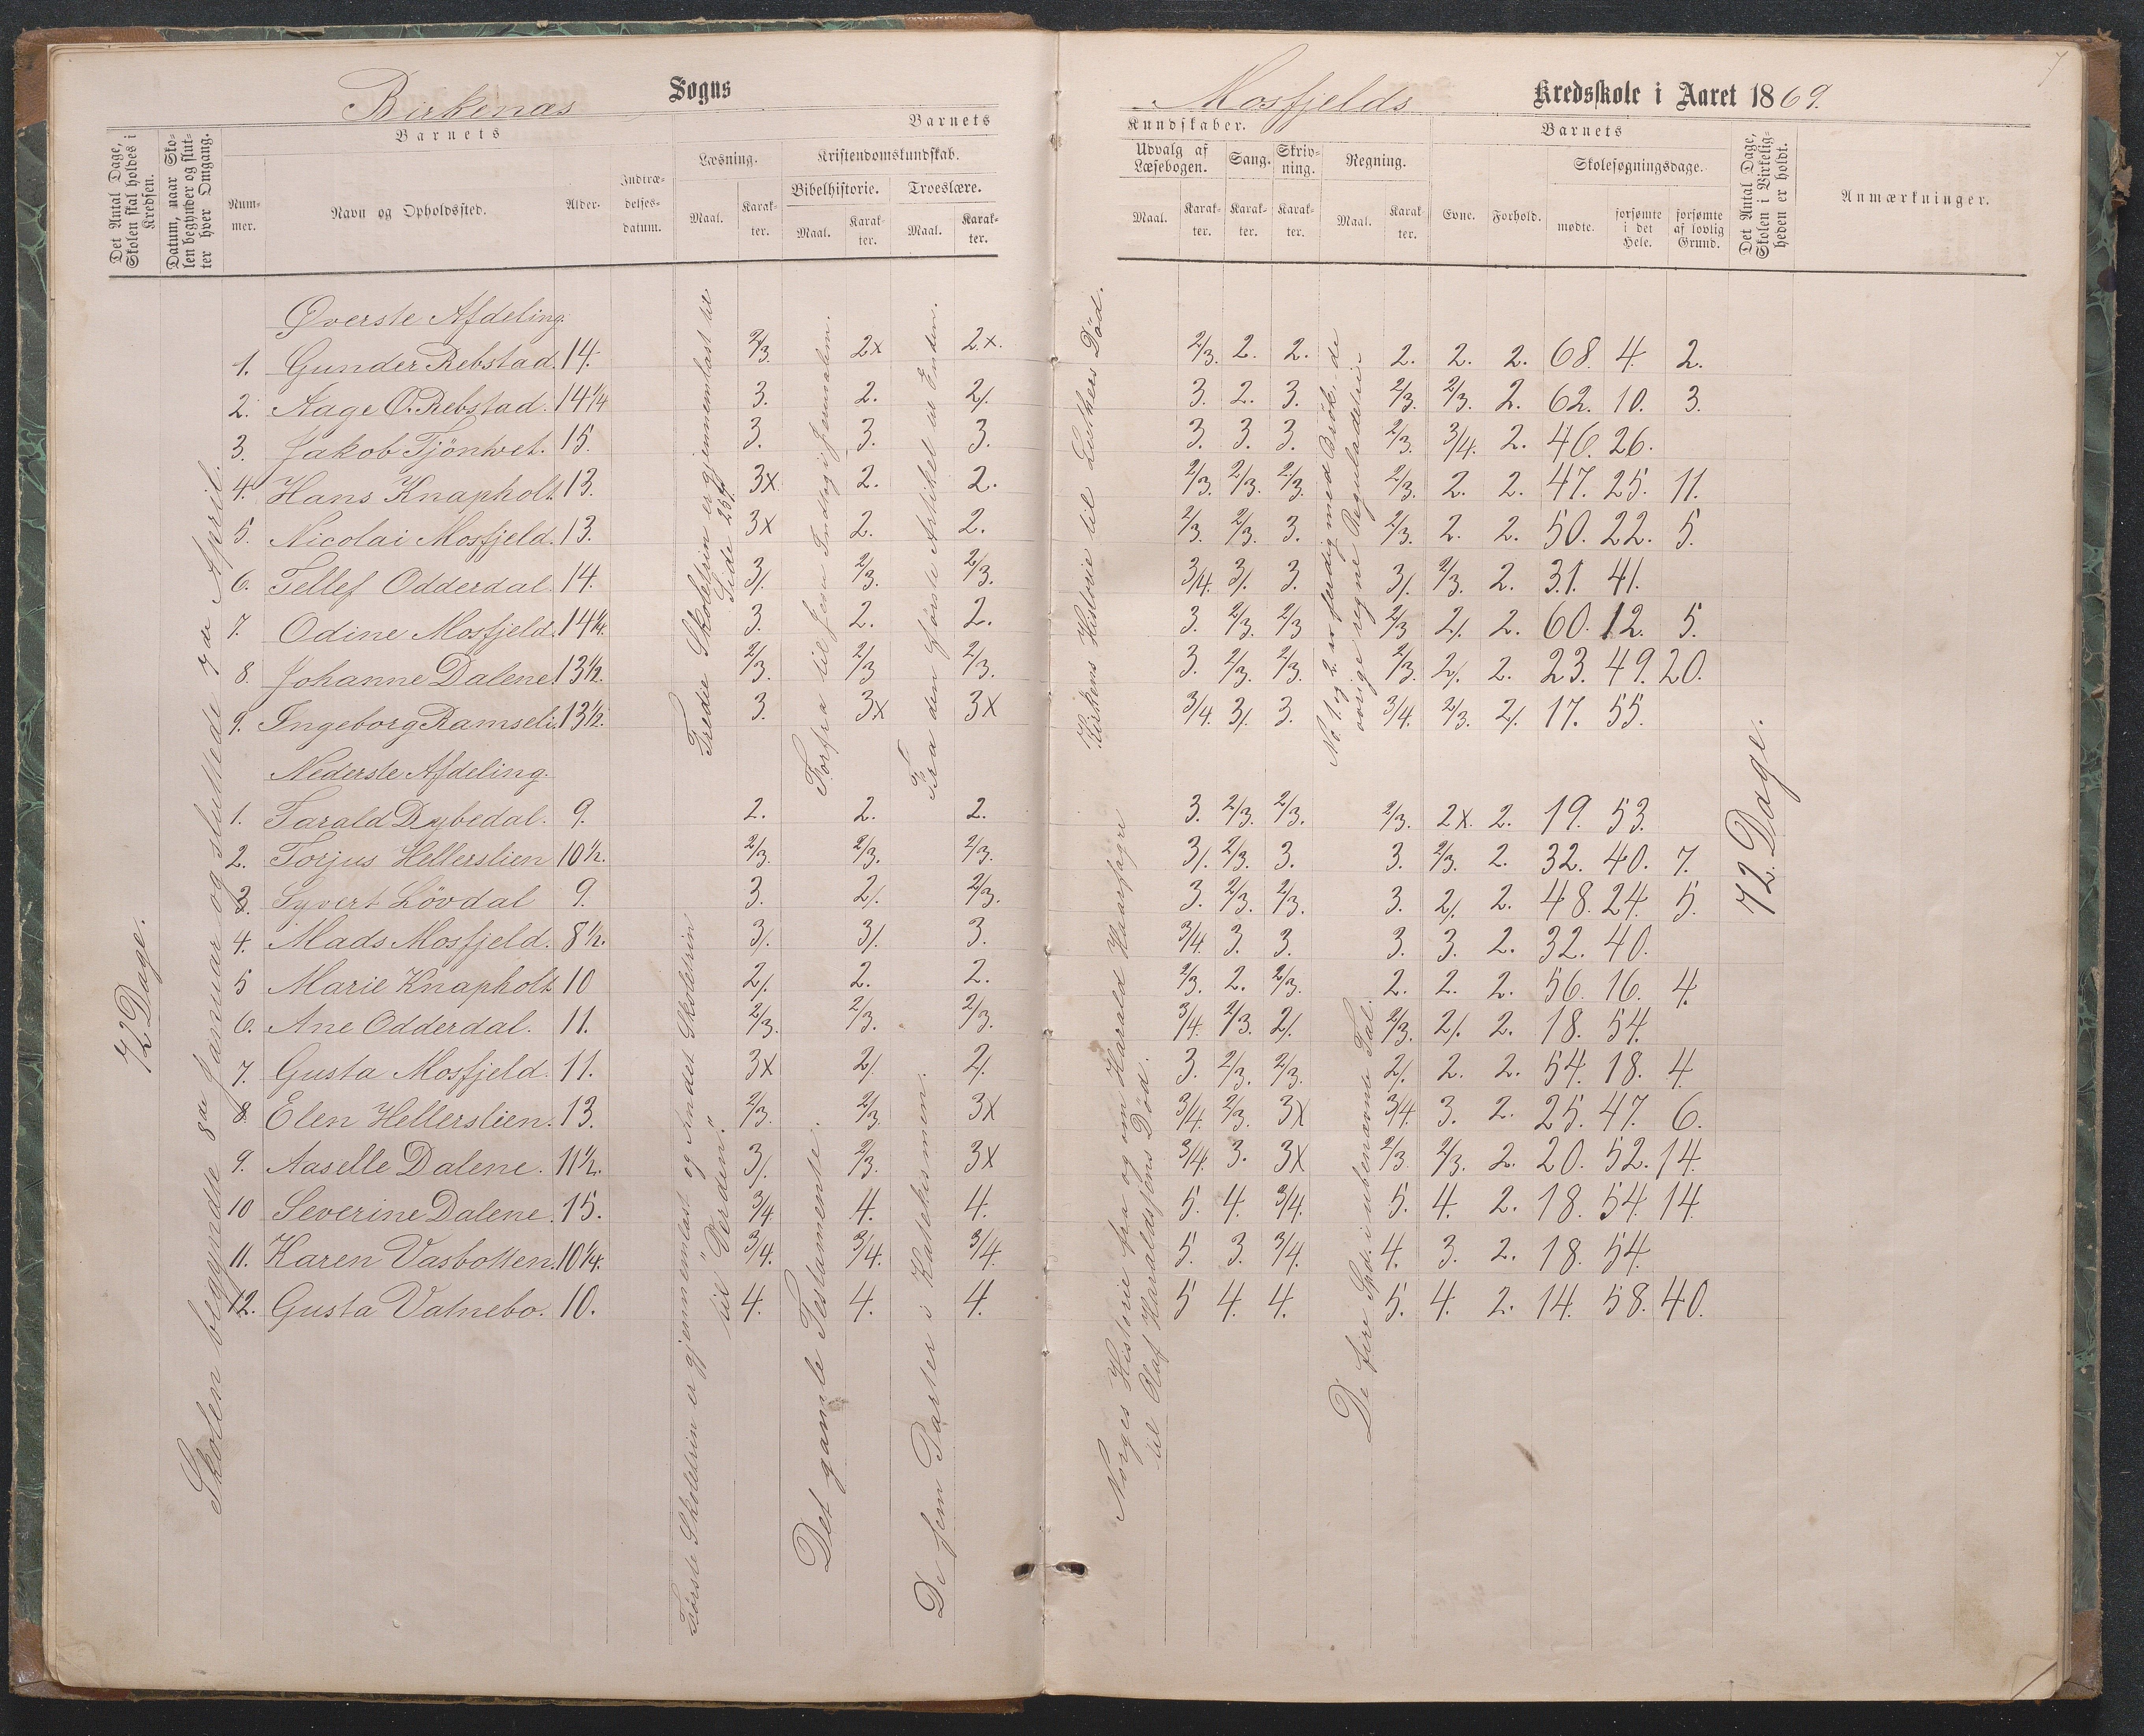 Birkenæs Sogns
Det Antal Dage, Skolen skal holdes i Kredsen.
Datum, naar Skolen begynder og slutter hver Omgang.
Barnets
Nummer.
Navn og Opholdssted.
Alder.
Indtrædelsesdatum.
Barnets
Læsning.
Maal.
Karakter.
Kristendomskundskab.
Bibelhistorie.
Maal.
Karakter.
Troeslære.
Maal.
Karakter.
Mosfjelds Kredsskole i Aaret 1869.
7
Kundskaber.
Udvalg af Læsebogen.
Maal.
Karakter.
Sang.
Karakter.
Skrivning.
Karakter.
Regning.
Maal.
Karakter.
Barnets
Evne.
Forhold.
Skolesøgningsdage.
mødte.
forsømte i det Hele.
forsømte af lovlig Grund.
Det Antal Dage, Skolen i Virkeligheden er holdt.
Anmærkninger.
72 Dage.
Skolen begyndte 8de Januar og sluttede 7de April.
Øverste Afdeling.
1. Gunder Rebstad. 14. 2/3. 2x 2x. 2/3. 2. 2. 2. 2. 2. 68. 4. 2.
2. Aage O. Rebstad. 14 1/4 3. 2. 2/. 3. 2. 3. 2/3. 2/3. 2. 62. 10. 3.
3. Jakob Tjönhvet. 15. 3. 3. 3. 3. 3. 3. 2/3. 3/4. 2. 46. 26.
4. Hans Knapholt. 13. 3x 2. 2. 2/3. 2/3. 2/3. 2/3. 2. 2. 47. 25. 11.
5. Nicolai Mosfjeld. 13. 3x 2. 2. 2/3. 2/3. 3. 2/3. 2. 2. 50. 22. 5.
6. Tellef Odderdal. 14. 3/. 2/3. 2/3. 3/4. 3/. 3. 3/. 2/3. 2. 31. 41.
7. Odine Mosfjeld. 14 1/4. 3. 2. 2. 3. 2/3. 2/3 2/3 2/. 2. 60. 12. 5.
8. Johanne Dalene. 13 1/2. 2/3. 2/3 2/3. 3. 2/3. 2/3. 2/3. 2/. 2. 23. 49. 20.
9. Ingeborg Ramseli. 13 1/2. 3. 3x 3x 3/4. 3/. 3. 3/4. 2/3. 2/. 17. 55.
Tredie Skoletrin er gjennemlæst til Side 257.
Forfra til Jesu Indtog i Jerusalem.
Fra den første Artikel til Enden.
Kirkens Historie til Luthers Död.
No. 1. og 2. er færdig med Brök, de övrige regne Reguladetri.
Nederste Afdeling.
1. Tarald Dybedal. 9. 2. 2. 2. 3. 2/3. 2/3. 2/3. 2x. 2. 19. 53.
2. Torjus Hellerslien 10 1/2. 2/3. 2/3. 2/3. 3/. 2/3. 3. 3. 2/3. 2. 32. 40. 7.
3. Syvert Lövdal 9. 3. 2/. 2/3. 3. 2/3. 2/3. 3. 2/. 2. 48. 24. 5.
4. Mads Mosfjeld. 8 1/2. 3/. 3/. 3. 3/4. 3. 3. 3. 3. 2. 32. 40.
5 Marie Knapholt 10 2/. 2. 2. 2/3. 2. 2/3. 2. 2. 2. 56. 16. 4.
6. Ane Odderdal. 11. 2/3. 2/3. 2/3. 3/4. 2/3. 2/. 2/3. 2/. 2. 18. 54.
7. Gusta Mosfjeld. 11. 3x 2/. 2/. 3. 2/3. 2/3. 2/. 2. 2. 54. 18. 4.
8. Elen Hellerslien. 13. 2/3. 2/3. 3x 3/4. 2/3. 3x 3/4. 3. 2. 25. 47. 6.
9. Aaselle Dalene. 11 1/2. 3/. 2/3. 3x 3/4. 3. 3x 2/3 2/3. 2. 20. 52. 14.
10 Severine Dalene. 15. 3/4. 4. 4. 5. 4. 3/4. 5. 4. 2. 18. 54. 14.
11. Karen Vasbotten. 10 1/4. 3/4. 3/4. 3/4. 5. 3. 3/4. 4. 3. 2. 18. 54.
12. Gusta Vatnebo. 10. 4. 4. 4. 5 4. 4. 5. 4. 2. 14. 58. 40.
Første Skoletrin er gjennemlæst og Andet Skoletrin til "Verden".
Det gamle Testamente.
De fem Parter i Katekismen.
Norges Historie fra og om Harald Haarfagre til Olaf Haraldssøns Död.
De fire Spec. i ubenævnte Tal.
72 Dage.